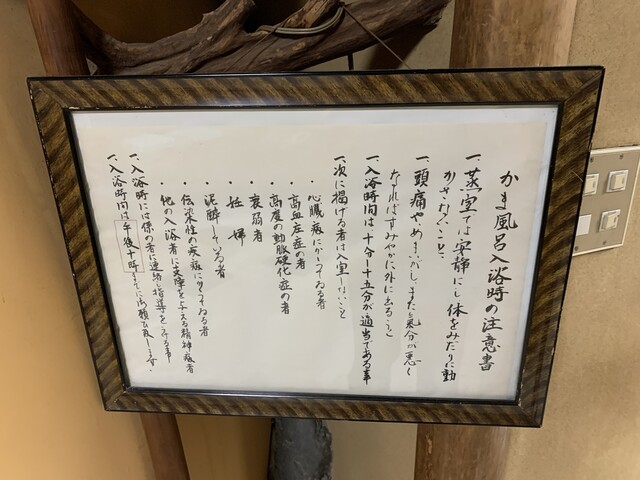 かま風呂入浴時の注意書
一、蒸室では安静にし体をみだりに動
かさないこと、
一、頭痛やめまいがし、または気分が悪く
なればすみやかに外に出ること
一、入浴時間は十分〜十五分が適当である事
一、次に掲げる者は入室しないこと
・心臓病にかかっている者
・高血圧症の者
・高度の動脈硬化症の者
・衰弱者
・妊婦
・泥酔している者
・伝染性の疾病にかかっている者
・他の入浴者に支障を与える精神病者
一、入浴時には係の者に連絡し指導をうける事
一、入浴時間は午後十時までに御願い致します。